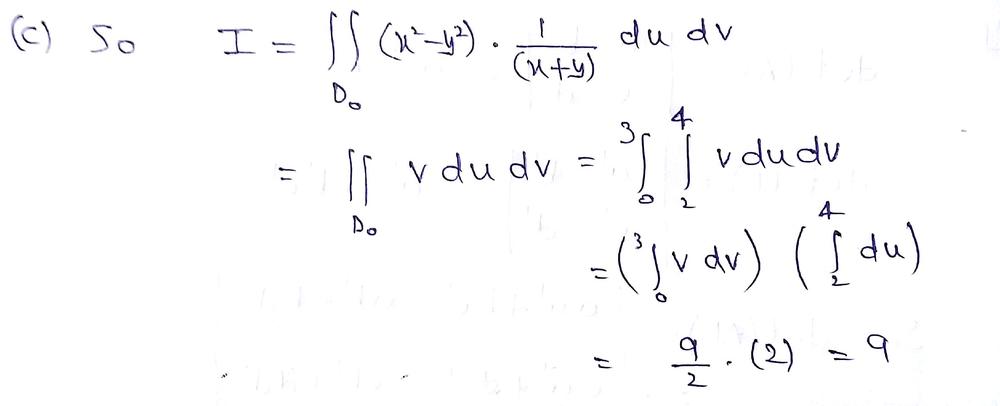 (c) So I = ∬_{D₀} (x²-y²) · 1/(x+y) du dv
= ∬_{D₀} v du dv = ∫₀³ ∫₂⁴ v du dv
= (∫₀³ v dv) (∫₂⁴ du)
= 9/2 · (2) = 9